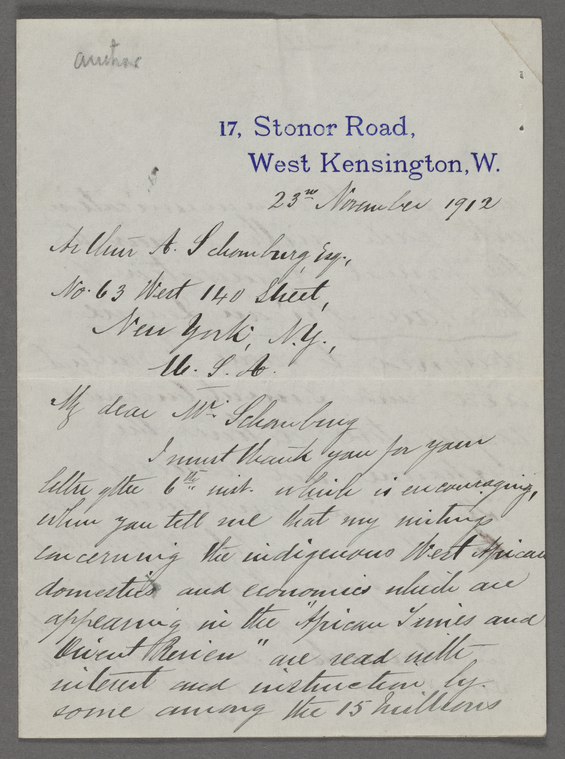 author
17, Stonor Road,
West Kensington, W.
23rd November 1912
Arthur A. Schomburg Esq.,
No. 63 West 140 Street,
New York, N.Y.,
U. S. A.
My dear Mr. Schomburg
I must thank you for your
letter of the 6th inst. which is encouraging,
when you tell me that my writings
concerning the indigenous West African
domestic and economics which are
appearing in the "African Times and
Orient Review" are read with
interest and instruction by
some among the 15 millions